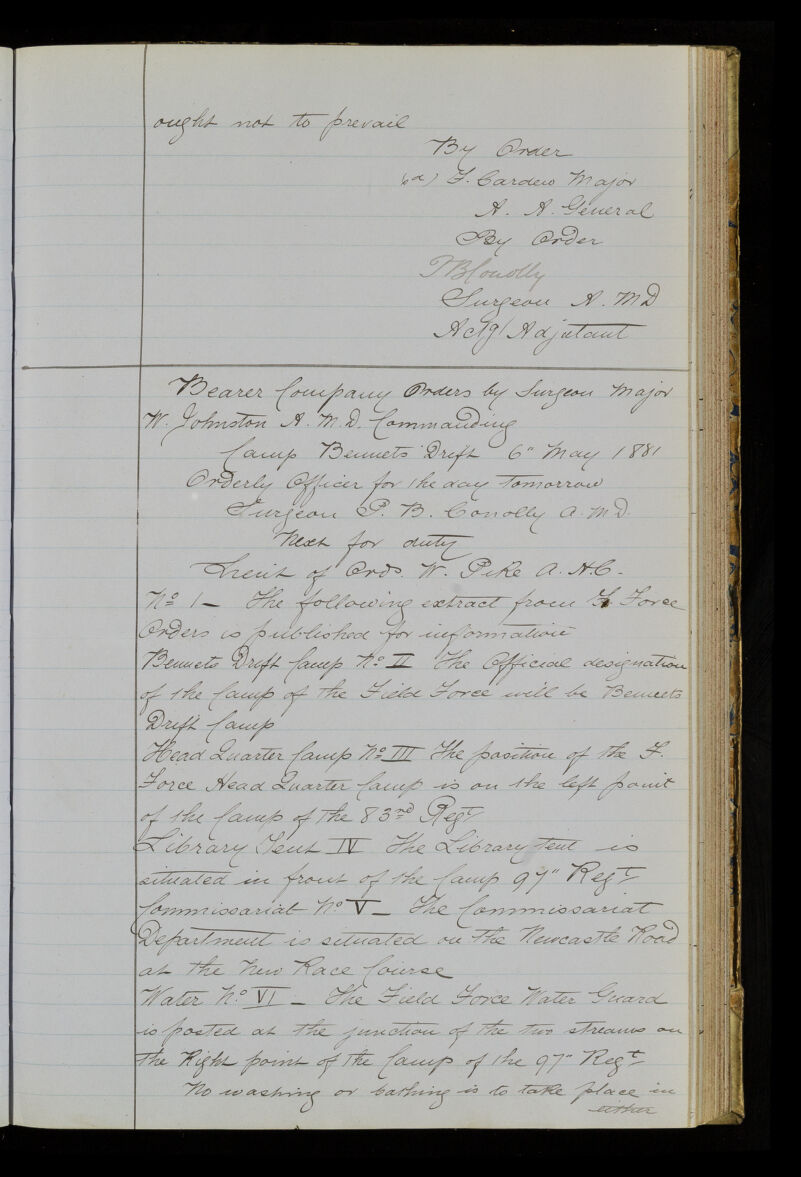 ought not to prevail
By Order
(sd) F. Cardew Major
A. A. General
By Order
PBConolly
Surgeon A. M D
Actg/ Adjutant
Bearer Company Orders by Surgeon Major
W. Johnston A. M. D. Commanding
Camp Bennets Drift 6" May 1881
Orderly Officer for the day Tomorrow
Surgeon P. B. Conolly A. M D.
Next for duty
Lieut of Ords. W. Pike A. H. C.
No 1 — The following extract from F. Force
Orders is published for information
Bennets Drift Camp No II The Official designation
of the Camp of the Field Force will be Bennets
Drift Camp
Head Quarter Camp No III The position of the F.
Force Head Quarter Camp is on the left point
of the Camp of the 83rd Regt
Library Tent IV The Library tent is
situated in front of the Camp 97" Regt
Commissariat No V — The Commissariat
Department is situated on the Newcastle Road
at the New Race Course
Water No VI — The Field Force Water Guard
is posted at the junction of the two streams on
the Right point of the Camp of the 97" Regt
No washing or bathing is to take place in
either